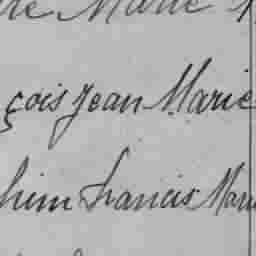 Marie
çois Jean Marie
him Francis Marie